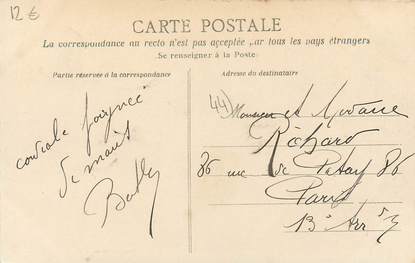 12 €
CARTE POSTALE
La correspondance au recto n'est pas acceptée par tous les pays étrangers
(Se renseigner à la Poste)
Partie réservée à la correspondance
Adresse du destinataire
cordiale poignée
de main
44)
Monsieur et Madame
Richard
86 rue de Patay 86
Paris
13e Arr